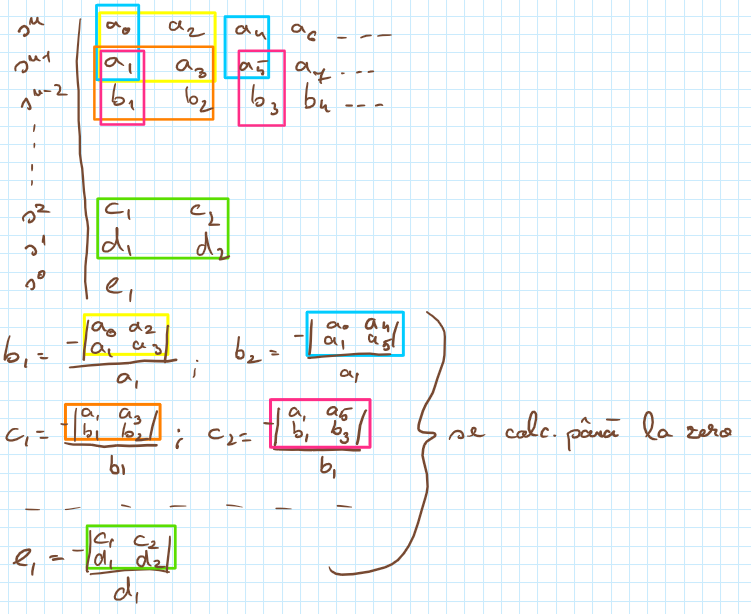 sⁿ | a₀ a₂ a₄ a₆ ----
sⁿ⁻¹ | a₁ a₃ a₅ a₇ ...
sⁿ⁻² | b₁ b₂ b₃ b₄ ---
s² | c₁ c₂
s¹ | d₁ d₂
s⁰ | e₁
b₁ = -|a₀ a₂; a₁ a₃| / a₁ ; b₂ = -|a₀ a₄; a₁ a₅| / a₁
c₁ = -|a₁ a₃; b₁ b₂| / b₁ ; c₂ = -|a₁ a₅; b₁ b₃| / b₁ } se calc. până la zero
- - - - - - - -
e₁ = -|c₁ c₂; d₁ d₂| / d₁